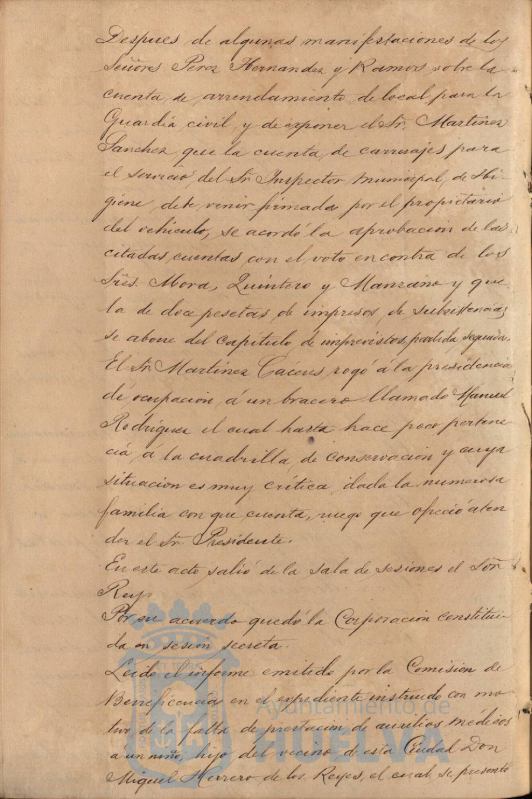 Despues de algunas manifestaciones de los
Señores Perez Hernandez y Ramos sobre la
cuenta de arrendamiento de local para la
Guardia civil, y de exponer el Sr. Martinez
Sanchez que la cuenta de carruajes para
el servicio del Sr. Inspector municipal de Hi-
giene, debe venir firmada por el propietario
del vehiculo, se acordó la aprobacion de las
citadas cuentas con el voto en contra de los
Sres. Mora, Quintero y Manzano y que
la de doce pesetas de impresos de subsistencias
se abone del capitulo de imprevistos partida segunda.
El Sr. Martinez Caceres rogó á la presidencia
dé ocupacion á un bracero llamado Manuel
Rodriguez el cual hasta hace poco pertene-
ciá á la cuadrilla de conservacion y cuya
situacion es muy critica dada la numerosa
familia con que cuenta, ruego que ofreció aten
der el Sr. Presidente.
En este acto salió de la sala de sesiones el Señ
Reyes
Por su acuerdo quedó la Corporacion constitui-
da en sesion secreta.
Leido el informe emitido por la Comision de
Beneficencia en el expediente instruido con mo-
tivo de la falta de prestacion de auxilios médicos
a un niño, hijo del vecino de esta Ciudad Don
Miguel Herrero de los Reyes, el cual se presentó
Ayuntamiento de
HUELVA